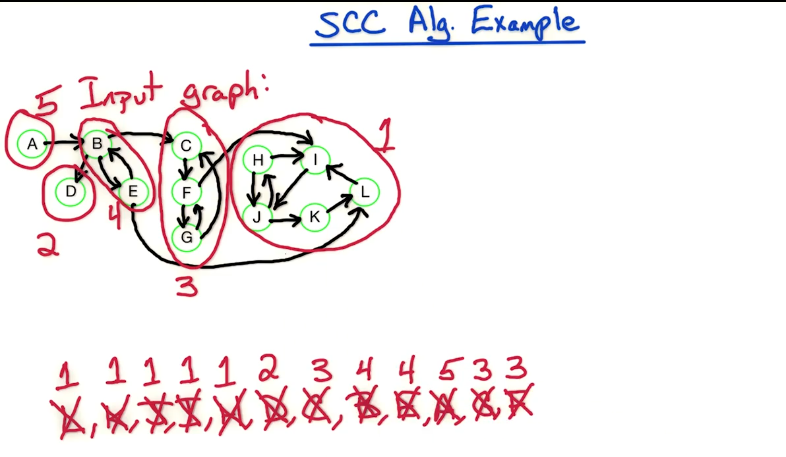 SCC Alg. Example
5 Input graph:
1
A B C H I
D E F L
J K
4
G
2
3
1 1 1 1 1 2 3 4 4 5 3 3
L, K, J, I, H, D, C, B, E, A, G, F